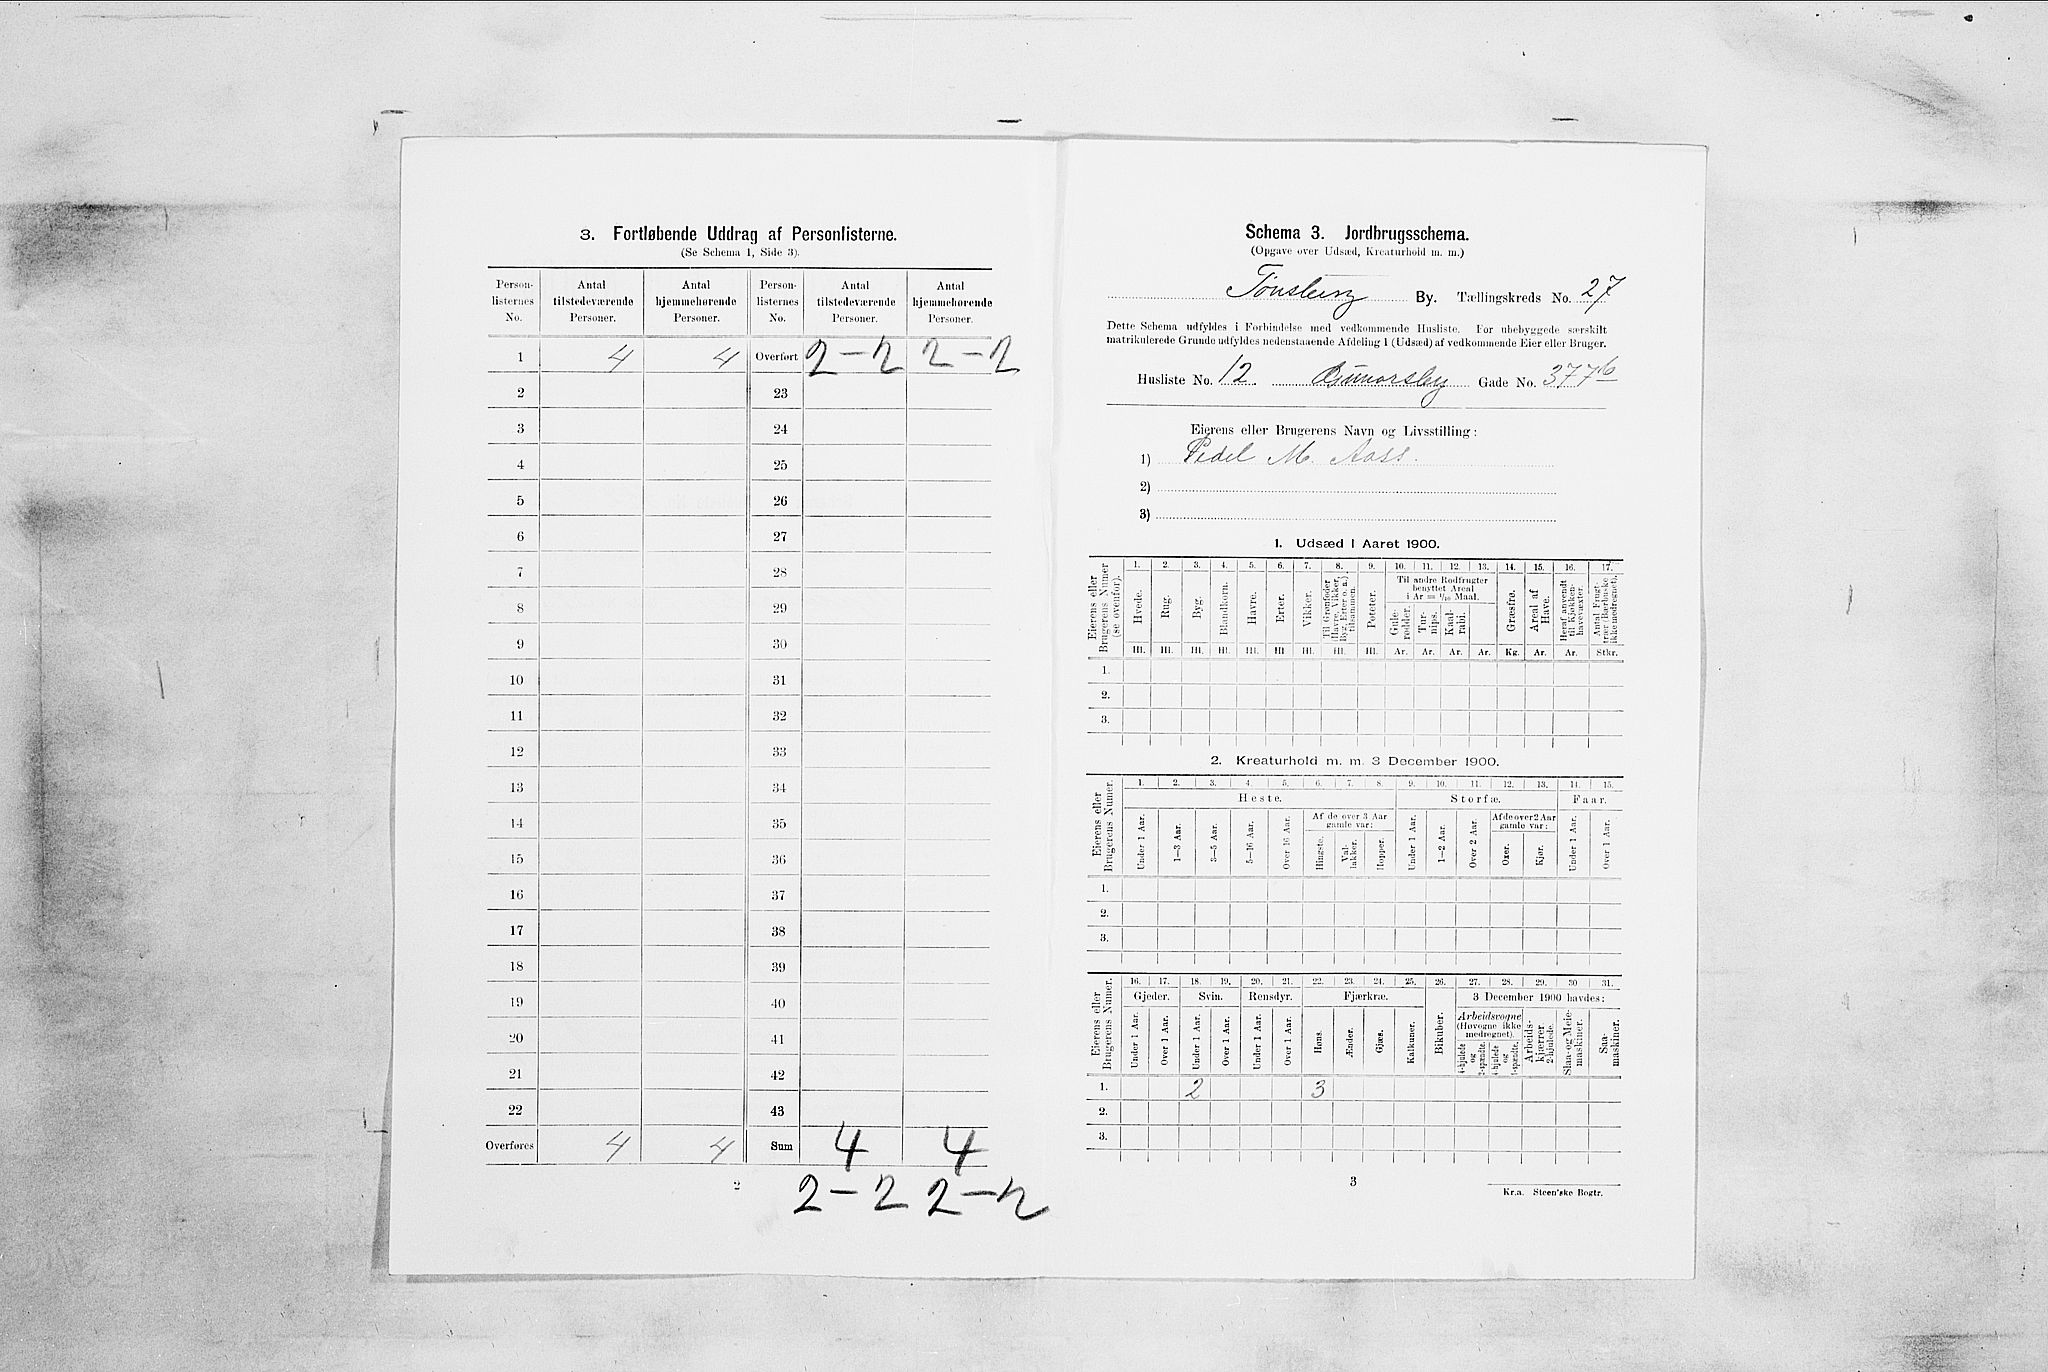 3. Fortløbende Uddrag af Personlisterne.
(Se Schema 1, Side 3).
Person-listernes No. | Antal tilstedeværende Personer. | Antal hjemmehørende Personer. | Person-listernes No. | Antal tilstedeværende Personer. | Antal hjemmehørende Personer.
1 4 4 Overført 2-2 2-2
2 23
3 24
4 25
5 26
6 27
7 28
8 29
9 30
10 31
11 32
12 33
13 34
14 35
15 36
16 37
17 38
18 39
19 40
20 41
21 42
22 43
Overføres 4 4 Sum 4 4
2-2 2-2
2
Schema 3. Jordbrugsschema.
(Opgave over Udsæd, Kreaturhold m. m.)
Tønsberg By. Tællingskreds No. 27
Dette Schema udfyldes i Forbindelse med vedkommende Husliste. For ubebyggede særskilt
matrikulerede Grunde udfyldes nedenstaaende Afdeling 1 (Udsæd) af vedkommende Eier eller Bruger.
Husliste No. 12. Gunnarsby Gade No. 377b
Eierens eller Brugerens Navn og Livsstilling:
1) Pedel M. Aass.
2)
3)
1. Udsæd i Aaret 1900.
Eierens eller Brugerens Numer (se ovenfor).
1. 2. 3. 4. 5. 6. 7. 8. 9. 10. 11. 12. 13. 14. 15. 16. 17.
Hvede. Rug. Byg. Blandkorn. Havre. Erter. Vikker. Til Grønfoder (Havre, Vikker, Byg, Erter o. a.) tilsammen. Poteter.
Til andre Rodfrugter benyttet Areal i Ar = 1/10 Maal.
Gule-rødder. Tur-nips. Kaal-rabi. Græsfrø. Areal af Have. Heraf anvendt til Kjøkken-havevæxter. Antal Frugt-trær (bærbuske ikke medregnet).
Hl. Hl. Hl. Hl. Hl. Hl. Hl. Hl. Hl. Ar. Ar. Ar. Ar. Kg. Ar. Ar. Stkr.
1.
2.
3.
2. Kreaturhold m. m. 3 December 1900.
Eierens eller Brugerens Numer.
1. 2. 3. 4. 5. 6. 7. 8. 9. 10. 11. 12. 13. 14. 15.
Heste. Storfæ. Faar.
Under 1 Aar. 1—3 Aar. 3—5 Aar. 5—16 Aar. Over 16 Aar. Af de over 3 Aar gamle var: Hingste. Val-lakker. Hopper. Under 1 Aar. 1—2 Aar. Over 2 Aar. Af de over 2 Aar gamle var: Oxer. Kjør. Under 1 Aar. Over 1 Aar.
1.
2.
3.
Eierens eller Brugerens Numer.
16. 17. 18. 19. 20. 21. 22. 23. 24. 25. 26. 27. 28. 29. 30 31.
Gjeder. Svin. Rensdyr. Fjærkræ. 3 December 1900 havdes:
Under 1 Aar. Over 1 Aar. Under 1 Aar. Over 1 Aar. Under 1 Aar. Over 1 Aar. Høns. Ænder. Gjæs. Kalkuner. Bikuber. Arbeidsvogne (Høvogne ikke medregnet). 4-hjulede og 2-spændte. 4-hjulede og 1-spændte. Arbeids-kjærrer 2-hjulede. Slaa- og Meie-maskiner. Saa-maskiner.
1. 2 3
2.
3.
3
Kr.a. Steen'ske Bogtr.